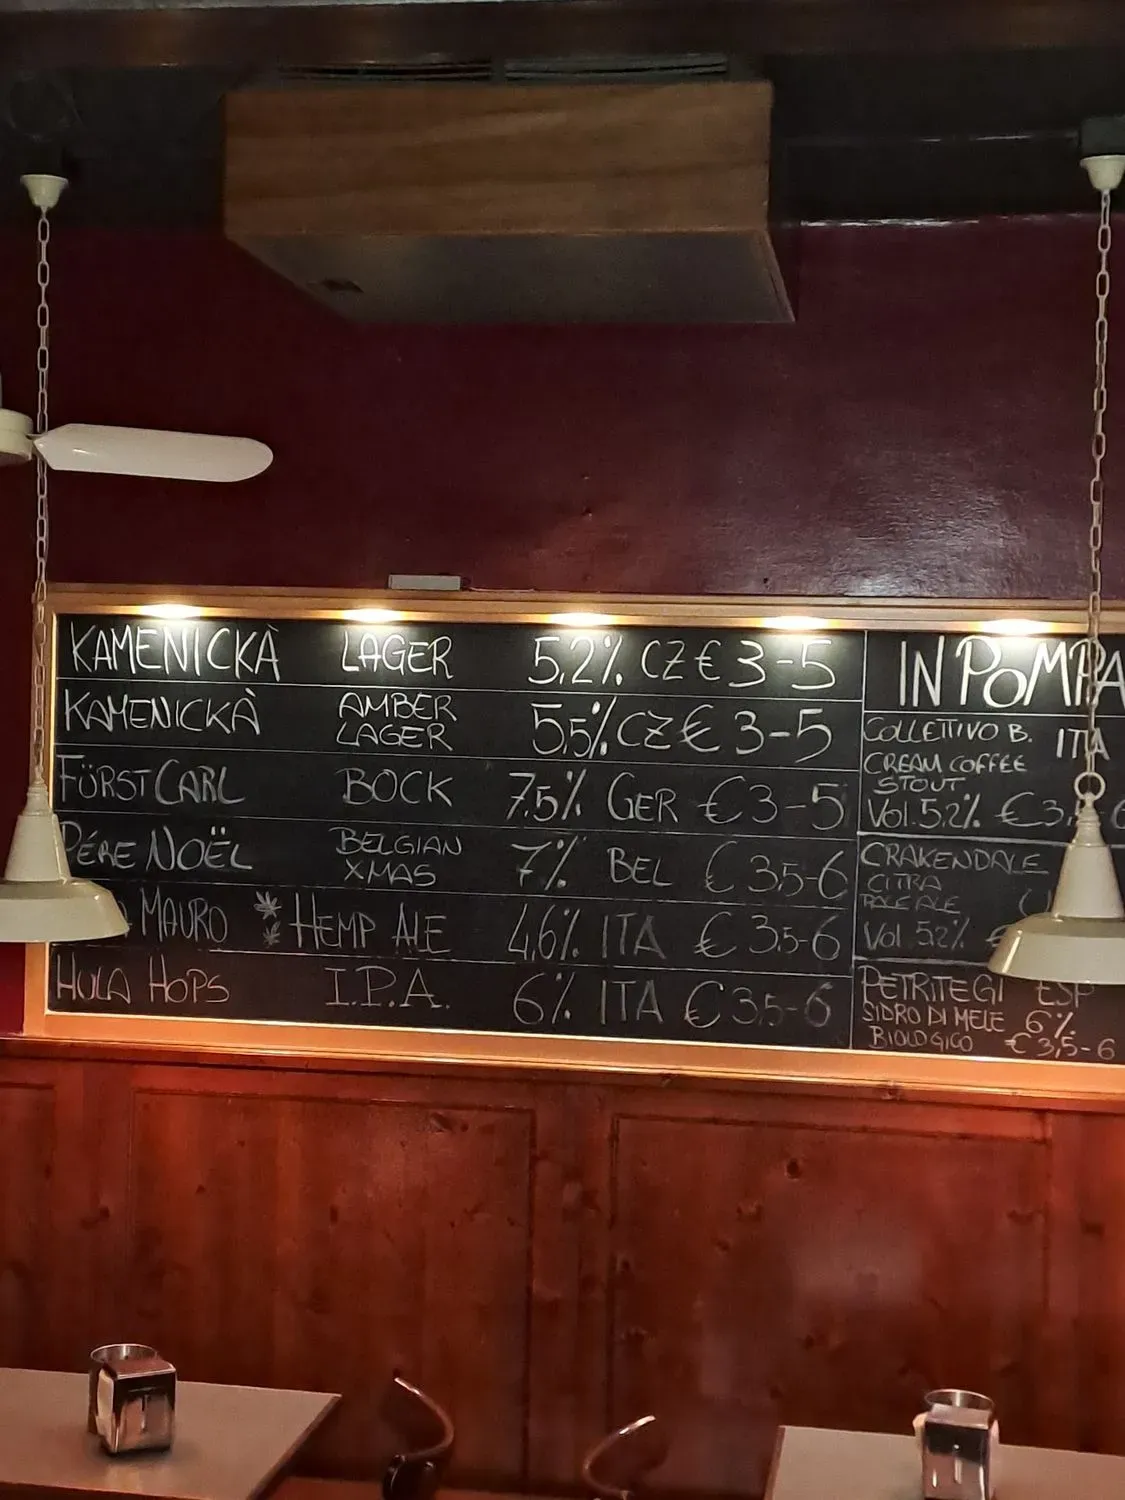 KAMENICKÀ LAGER 5,2% CZ € 3-5
KAMENICKÀ AMBER LAGER 5,5% CZ € 3-5
FÜRST CARL BOCK 7,5% GER € 3-5
PÉRE NOËL BELGIAN XMAS 7% BEL € 3,5-6
MAURO HEMP ALE 4,6% ITA € 3,5-6
HULA HOPS I.P.A. 6% ITA € 3,5-6
IN POMPA
COLLETTIVO B. ITA
CREAM COFFEE
STOUT
Vol. 5,2% € 3,
CRAKENDALE
CITRA
PALE ALE
Vol 5,2% €
PETRITEGI ESP
SIDRO DI MELE 6%
BIOLOGICO € 3,5-6